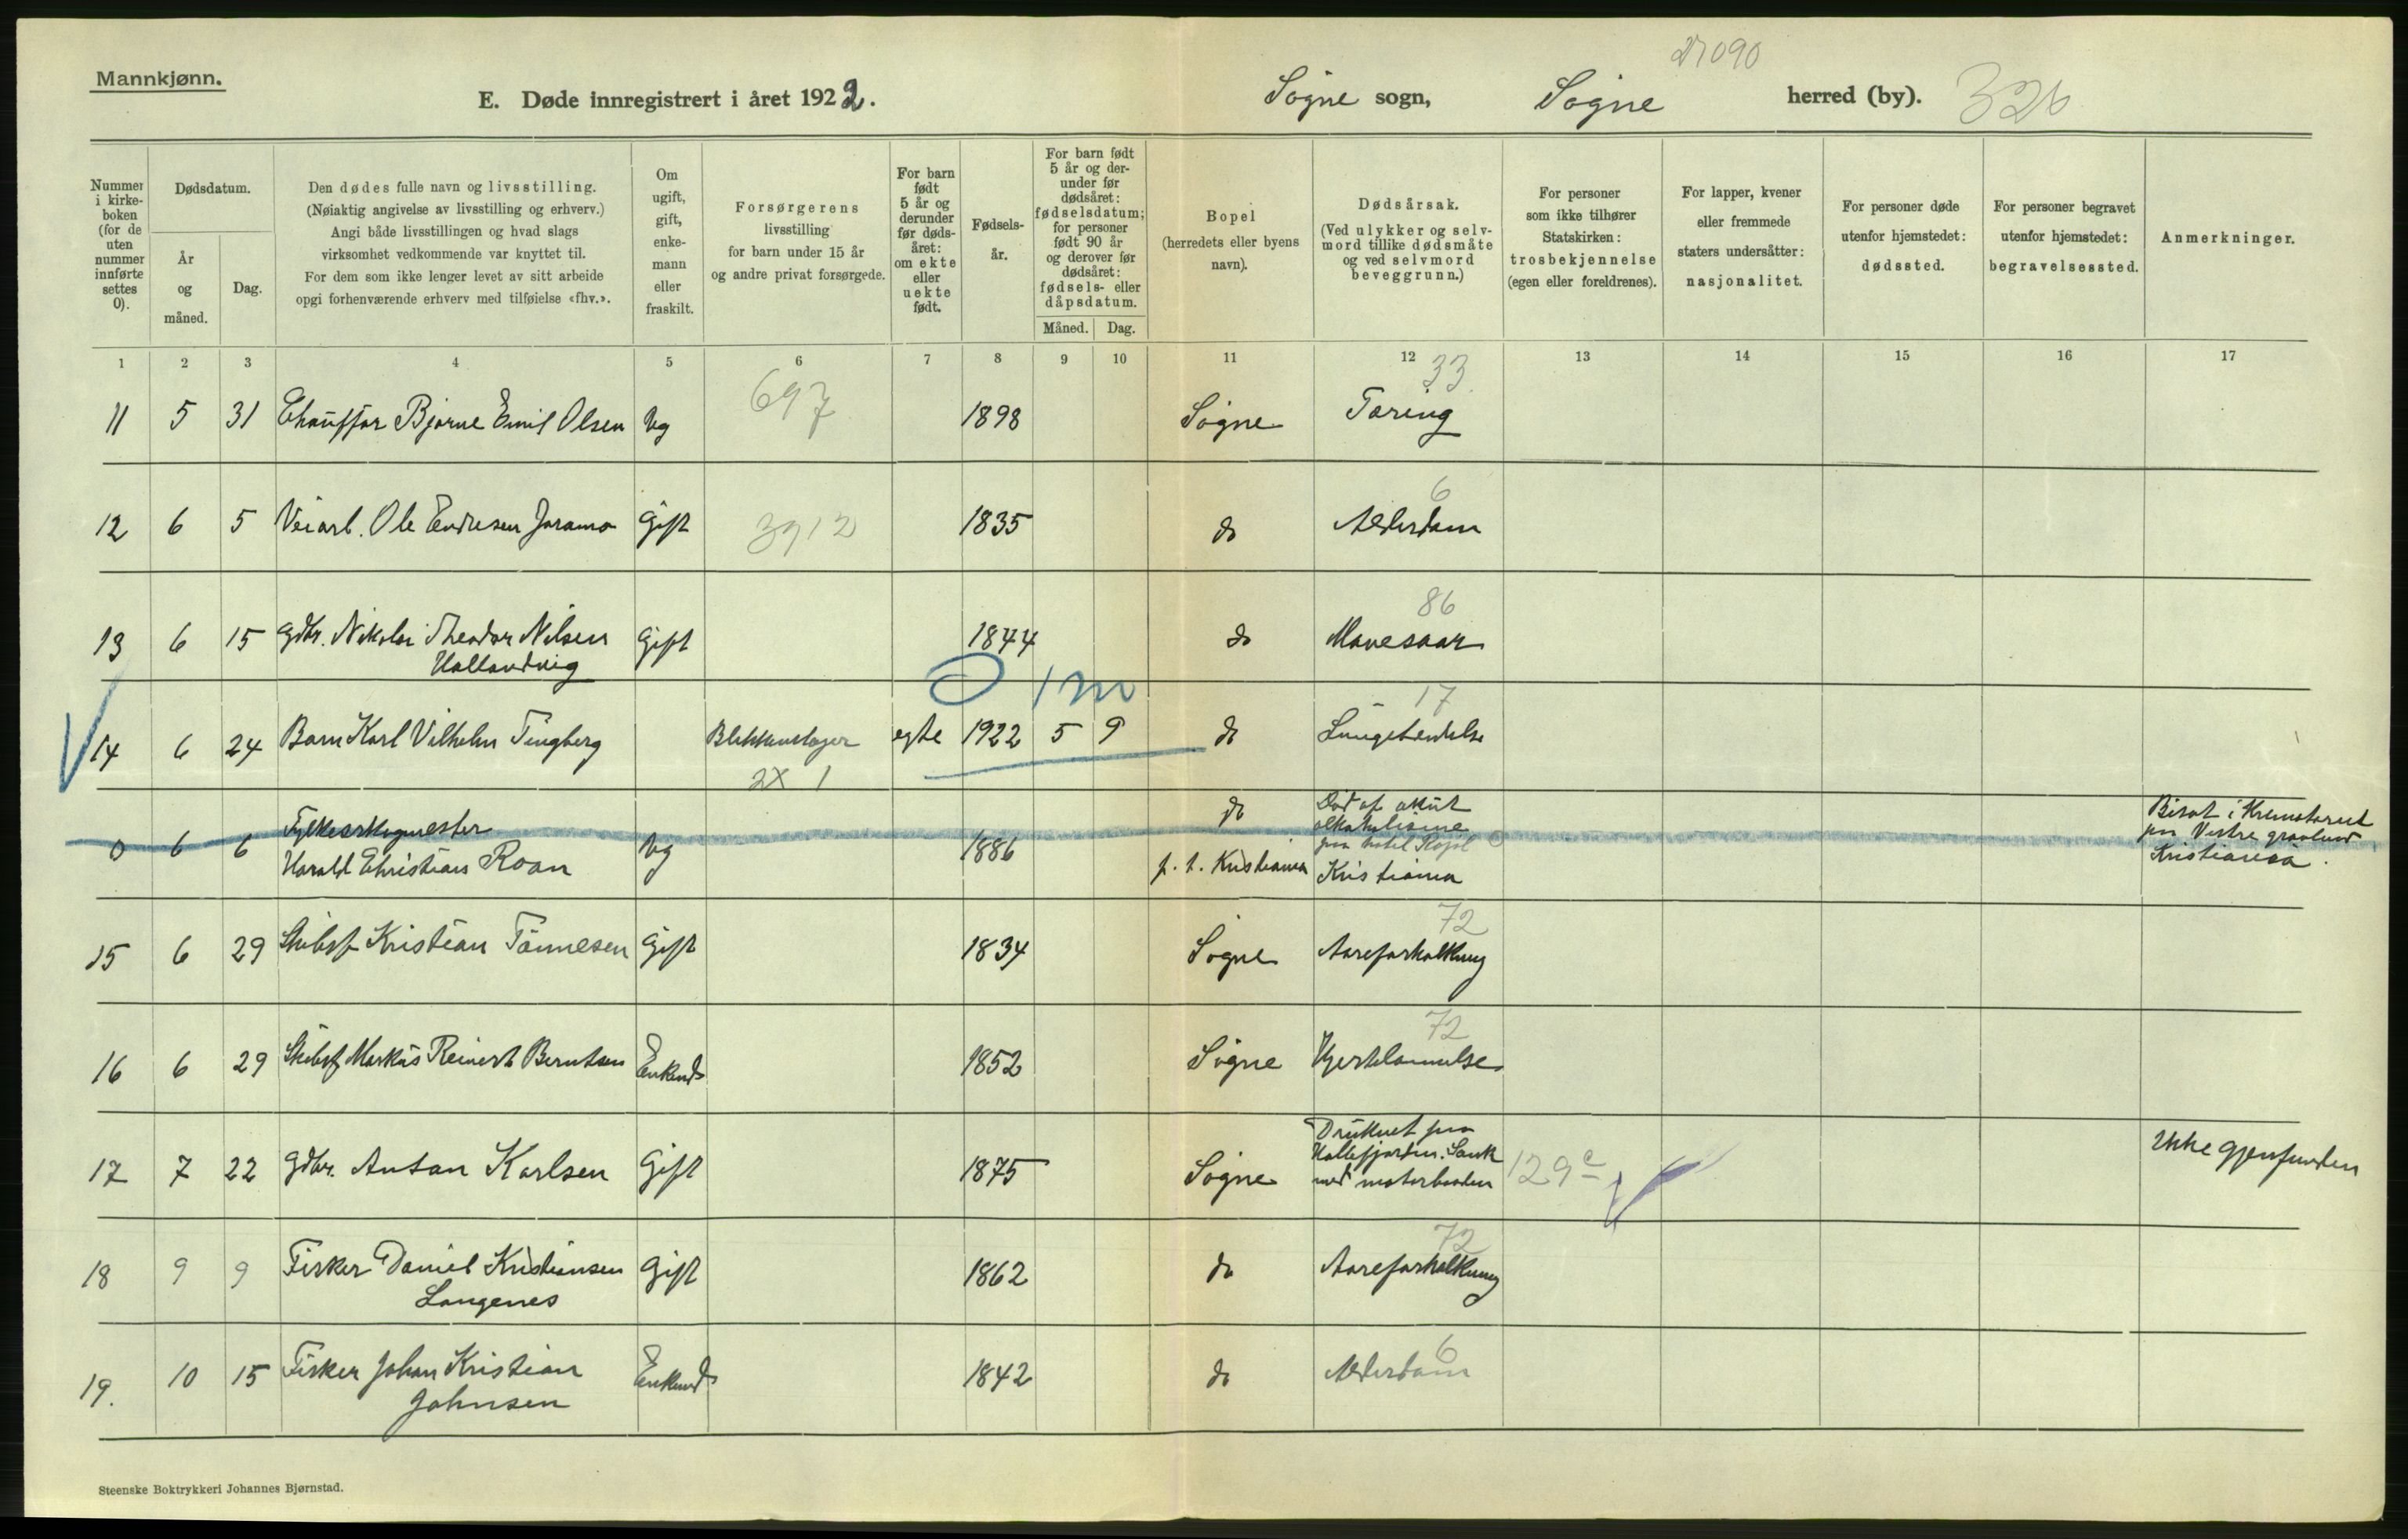 27090
Mannkjønn.
E. Døde innregistrert i året 1922.
Søgne sogn, Søgne herred (by). 326
Nummer i kirke- boken (for de uten nummer innførte settes 0).
Dødsdatum.
År og måned.
Dag.
Den dødes fulle navn og livsstilling.
(Nøiaktig angivelse av livsstilling og erhverv.)
Angi både livsstillingen og hvad slags
virksomhet vedkommende var knyttet til.
For dem som ikke lenger levet av sitt arbeide
opgi forhenværende erhverv med tilføielse «fhv.».
Om ugift, gift, enke- mann eller fraskilt.
Forsørgerens
livsstilling
for barn under 15 år
og andre privat forsørgede.
For barn født 5 år og derunder før døds- året: om ekte eller uekte født.
Fødsels- år.
For barn født 5 år og der- under før dødsåret: fødselsdatum; for personer født 90 år og derover før dødsåret: fødsels- eller dåpsdatum.
Måned. Dag.
Bopel
(herredets eller byens
navn).
Dødsårsak.
(Ved ulykker og selv-
mord tillike dødsmåte
og ved selvmord
beveggrunn.)
For personer
som ikke tilhører
Statskirken:
trosbekjennelse
(egen eller foreldrenes).
For lapper, kvener
eller fremmede
staters undersåtter:
nasjonalitet.
For personer døde
utenfor hjemstedet:
dødssted.
For personer begravet
utenfor hjemstedet:
begravelsessted.
Anmerkninger.
1 2 3 4 5 6 7 8 9 10 11 12 13 14 15 16 17
697 33
11 5 31 Chauffør Bjarne Emil Olsen Ug 1898 Søgne Tæring
6
12 6 5 Veiarb. Ole Endresen Gift 3912 1835 do Alderdom
86
13 6 15 Gdbr. Nikolai Theodor Nilsen Gift 1844 do Mavesaar
Hallandvig
0 1 m 17
14 6 24 Barn Karl Vilhelm Tingberg Blikkenslager egte 1922 5 9 do Lungebetendelse
2X 1
Fylkesskogmester do Død af akut alkoholisme
0 6 6 Harald Christian Roan Ug 1886 p. t. Kristiania paa hotel Kristiania
Bisat i Krematoriet
paa Vestre gravlund
Kristiania.
72
15 6 29 Skibsf Kristian Tønnesen Gift 1834 Søgne Aareforkalkning
72
16 6 29 Skibsf Markus Reinert Berntsen Enkemd 1852 Søgne Hjertelammelse
17 7 22 Gdbr. Anton Karlsen Gift 1875 Søgne Druknet paa
Hallefjorden. Sank
med motorbaaden 129c Ikke gjenfunden
72
18 9 9 Fisker Daniel Kristiansen Gift 1862 do Aareforkalkning
Langenes
6
19. 10 15 Fisker Johan Kristian Enkemd 1842 do Alderdom
Johnsen
Steenske Boktrykkeri Johannes Bjørnstad.